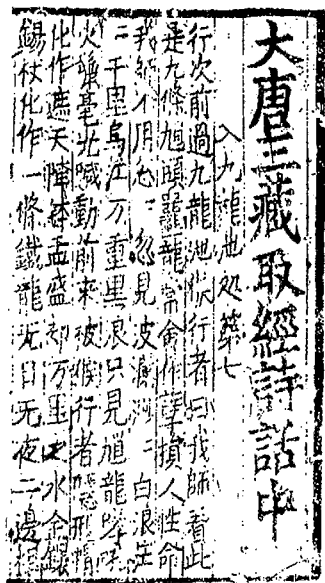 大唐三藏取經詩話中
入九龍池処第七
行次前過九龍池猴行者曰我師看此
是九條馗頭鼉龍常會作孽損人性命
我師不用忩忩忽見波瀾渺渺白浪茫
千里烏江万重黒浪只見馗龍哮吼
火鬣毫光喊動前來被猴行者隠形帽
化作遮天陣鉢盂盛却万里之水金鐶
錫杖化作一條鐵龍无日无夜二邊